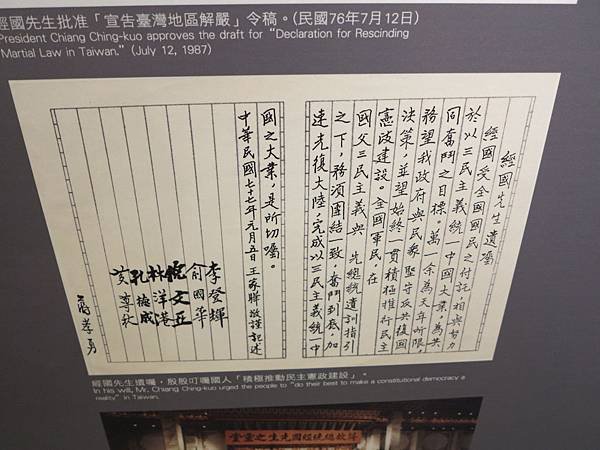 經國先生批准「宣告臺灣地區解嚴」令稿。(民國76年7月12日)
President Chiang Ching-kuo approves the draft for "Declaration for Rescinding
Martial Law in Taiwan." (July 12, 1987)
經國先生遺囑
經國受全國國民之付託,相與努力
於以三民主義統一中國大業,為共
同奮鬥之目標。萬一余為天年所限,
務望我政府與民眾堅守反共復國
決策,並望始終一貫積極推行民主
憲政建設。全國軍民,在
國父三民主義與 先總統遺訓指引
之下,務須團結一致,奮鬥到底,加
速光復大陸,完成以三民主義統一中
國之大業,是所切囑。
中華民國七十七年元月五日王家驊敬謹記述
李登輝
俞國華
倪文亞
林洋港
孔德成
黃尊秋
蔣孝勇
經國先生遺囑,殷殷叮囑國人「積極推動民主憲政建設」。
In his will, Mr. Chiang Ching-kuo urged the people to "do their best to make a constitutional democracy a
reality" in Taiwan.
蔣故總統經國先生之靈堂